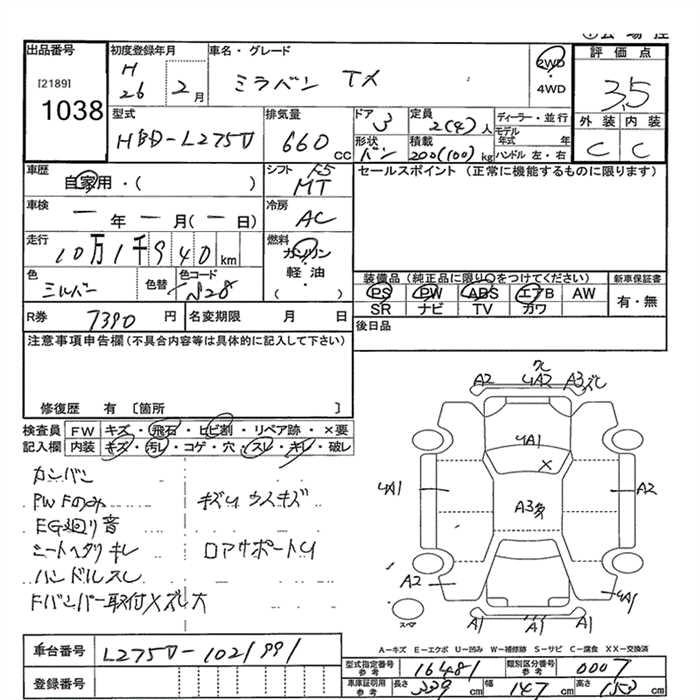 出品番号
[2189]
1038
初度登録年月
H
26 2月
車名・グレード
ミラバン TX
2WD
4WD
評価点
3.5
型式
HBD-L275V
排気量
660 cc
ドア
3
形状
バン
定員
2(4)人
積載
200(100)kg
ディーラー・並行
モデル年式 年
ハンドル 左・右
外装 内装
C C
車歴
自家用・( )
シフト F5
MT
セールスポイント (正常に機能するものに限ります)
車検
一年一月(一日)
冷房
AC
走行
10万1千940km
燃料
ガソリン
軽油
( )
色
シルバー
色替
色コード
S28
装備品(純正品に限り○をつけてください)
新車保証書
PS PW ABS エアB AW
有・無
SR ナビ TV カワ
R券 7390円
名変期限 月 日
後日品
注意事項申告欄(不具合内容等は具体的に記入して下さい)
修復歴 有 〔箇所 〕
検査員 FW キズ・飛石・ヒビ割・リペア跡・×要
記入欄 内装 キズ・汚レ・コゲ・穴・スレ・キレ・破レ
カンバン
PW Fのみ キズU ウスキズ
EG廻り音
シートヘタリキレ ロアサポートU
ハンドルスレ
Fバンパー取付×ズレ大
A2 UA2 A3ズレ
UA1
×
UA1 A3多 A2
A2 UA1
スペア
A1 A1 A1
A-キズ E-エクボ U-凹み W-補修跡 S-サビ C-腐食 XX-交換済
車台番号 L275V-1021991
型式指定番号 参考 16481
類別区分番号 参考 0007
登録番号
車庫証明用 参考 長さ 339cm 幅 147cm 高さ 153cm